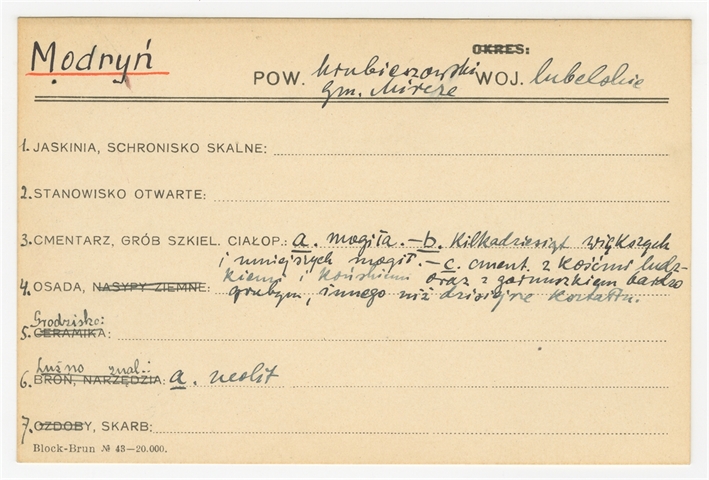 Modryń
OKRES:
POW. hrubieszowski WOJ. lubelskie
gm. Mircze
1. JASKINIA, SCHRONISKO SKALNE:
2. STANOWISKO OTWARTE:
3. CMENTARZ, GRÓB SZKIEL. CIAŁOP.: a. mogiła. – b. Kilkadziesiąt większych
i mniejszych mogił. – c. cment. z kośćmi ludz-
kiemi i końskimi oraz z garnuszkiem bardzo
4. OSADA, NASYPY ZIEMNE: grubym, innego niż dzisiejsze kształtu.
Grodzisko:
5. CERAMIKA:
Luźno znal.:
6. BROŃ, NARZĘDZIA: a. neolit
7. OZDOBY, SKARB:
Block-Brun № 43—20.000.